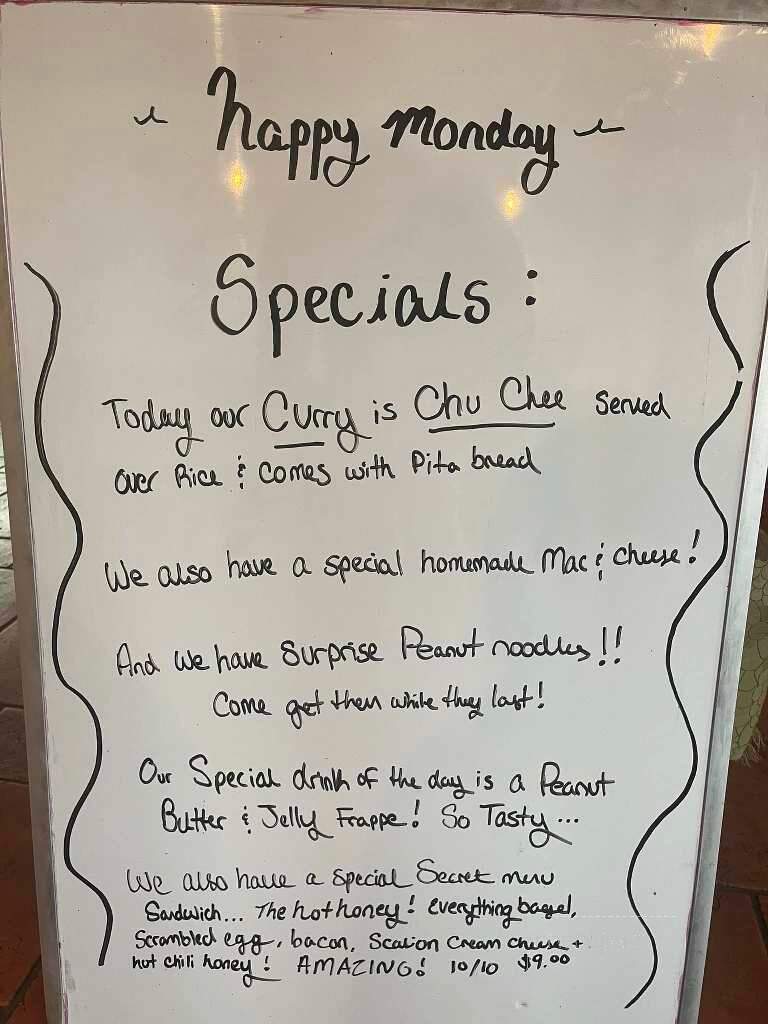 Happy Monday
Specials:
Today our Curry is Chu Chee served
over Rice & comes with Pita bread
We also have a special homemade Mac & cheese!
And we have surprise Peanut noodles!!
Come get them while they last!
Our Special drink of the day is a Peanut
Butter & Jelly Frappe! So Tasty...
We also have a special Secret menu
Sandwich... The hot honey! everything bagel,
Scrambled egg, bacon, Scalion Cream cheese +
hot chili honey! AMAZING! 10/10 $9.00